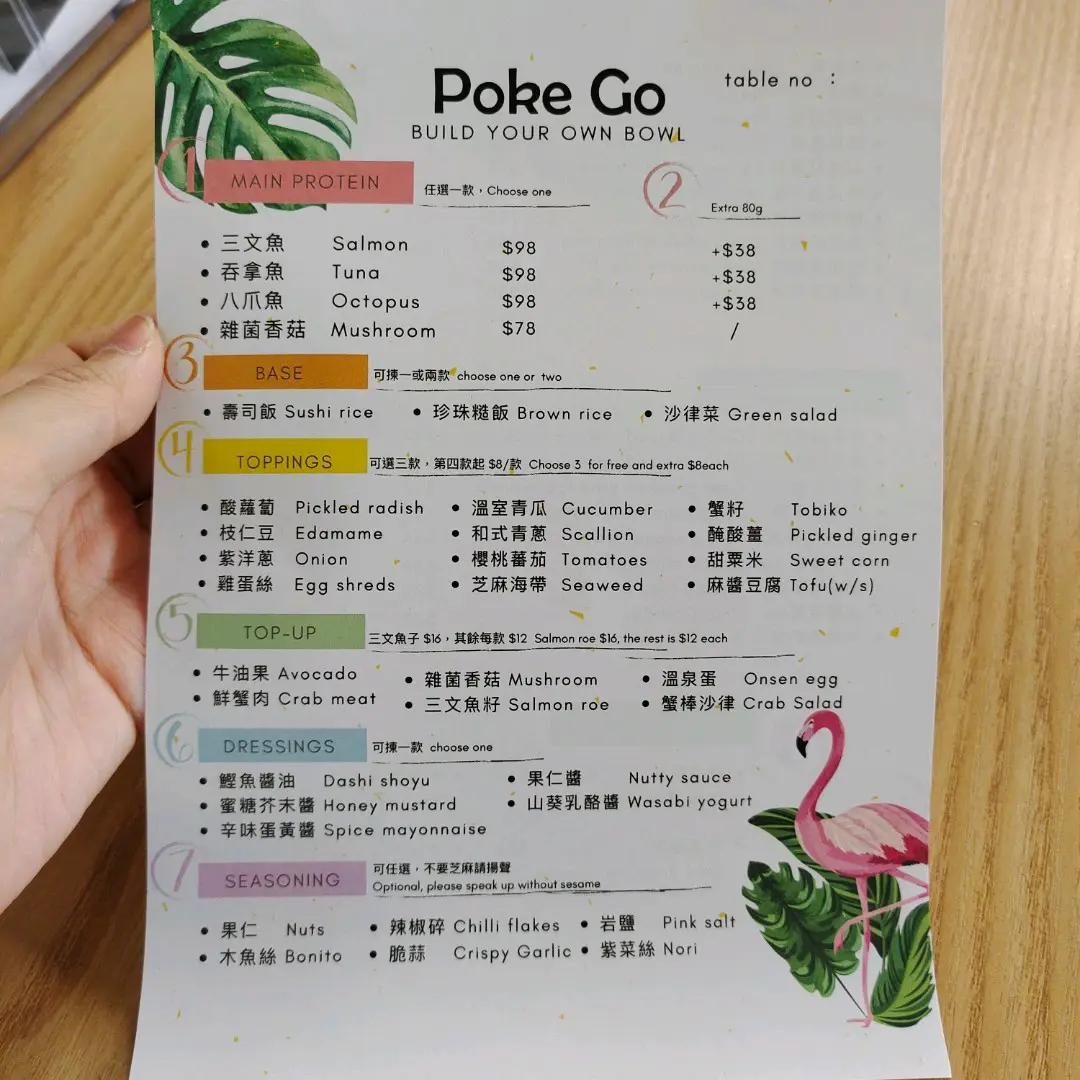 Poke Go
table no :
BUILD YOUR OWN BOWL
1 MAIN PROTEIN 任選一款，Choose one
2 Extra 80g
• 三文魚 Salmon $98 +$38
• 吞拿魚 Tuna $98 +$38
• 八爪魚 Octopus $98 +$38
• 雜菌香菇 Mushroom $78 /
3 BASE 可揀一或兩款 choose one or two
• 壽司飯 Sushi rice • 珍珠糙飯 Brown rice • 沙律菜 Green salad
4 TOPPINGS 可選三款，第四款起 $8/款 Choose 3 for free and extra $8each
• 酸蘿蔔 Pickled radish • 溫室青瓜 Cucumber • 蟹籽 Tobiko
• 枝仁豆 Edamame • 和式青蔥 Scallion • 醃酸薑 Pickled ginger
• 紫洋蔥 Onion • 櫻桃蕃茄 Tomatoes • 甜粟米 Sweet corn
• 雞蛋絲 Egg shreds • 芝麻海帶 Seaweed • 麻醬豆腐 Tofu(w/s)
5 TOP-UP 三文魚子 $16，其餘每款 $12 Salmon roe $16, the rest is $12 each
• 牛油果 Avocado • 雜菌香菇 Mushroom • 溫泉蛋 Onsen egg
• 鮮蟹肉 Crab meat • 三文魚籽 Salmon roe • 蟹棒沙律 Crab Salad
6 DRESSINGS 可揀一款 choose one
• 鰹魚醬油 Dashi shoyu • 果仁醬 Nutty sauce
• 蜜糖芥末醬 Honey mustard • 山葵乳酪醬 Wasabi yogurt
• 辛味蛋黃醬 Spice mayonnaise
7 SEASONING 可任選，不要芝麻請揚聲
Optional, please speak up without sesame
• 果仁 Nuts • 辣椒碎 Chilli flakes • 岩鹽 Pink salt
• 木魚絲 Bonito • 脆蒜 Crispy Garlic • 紫菜絲 Nori